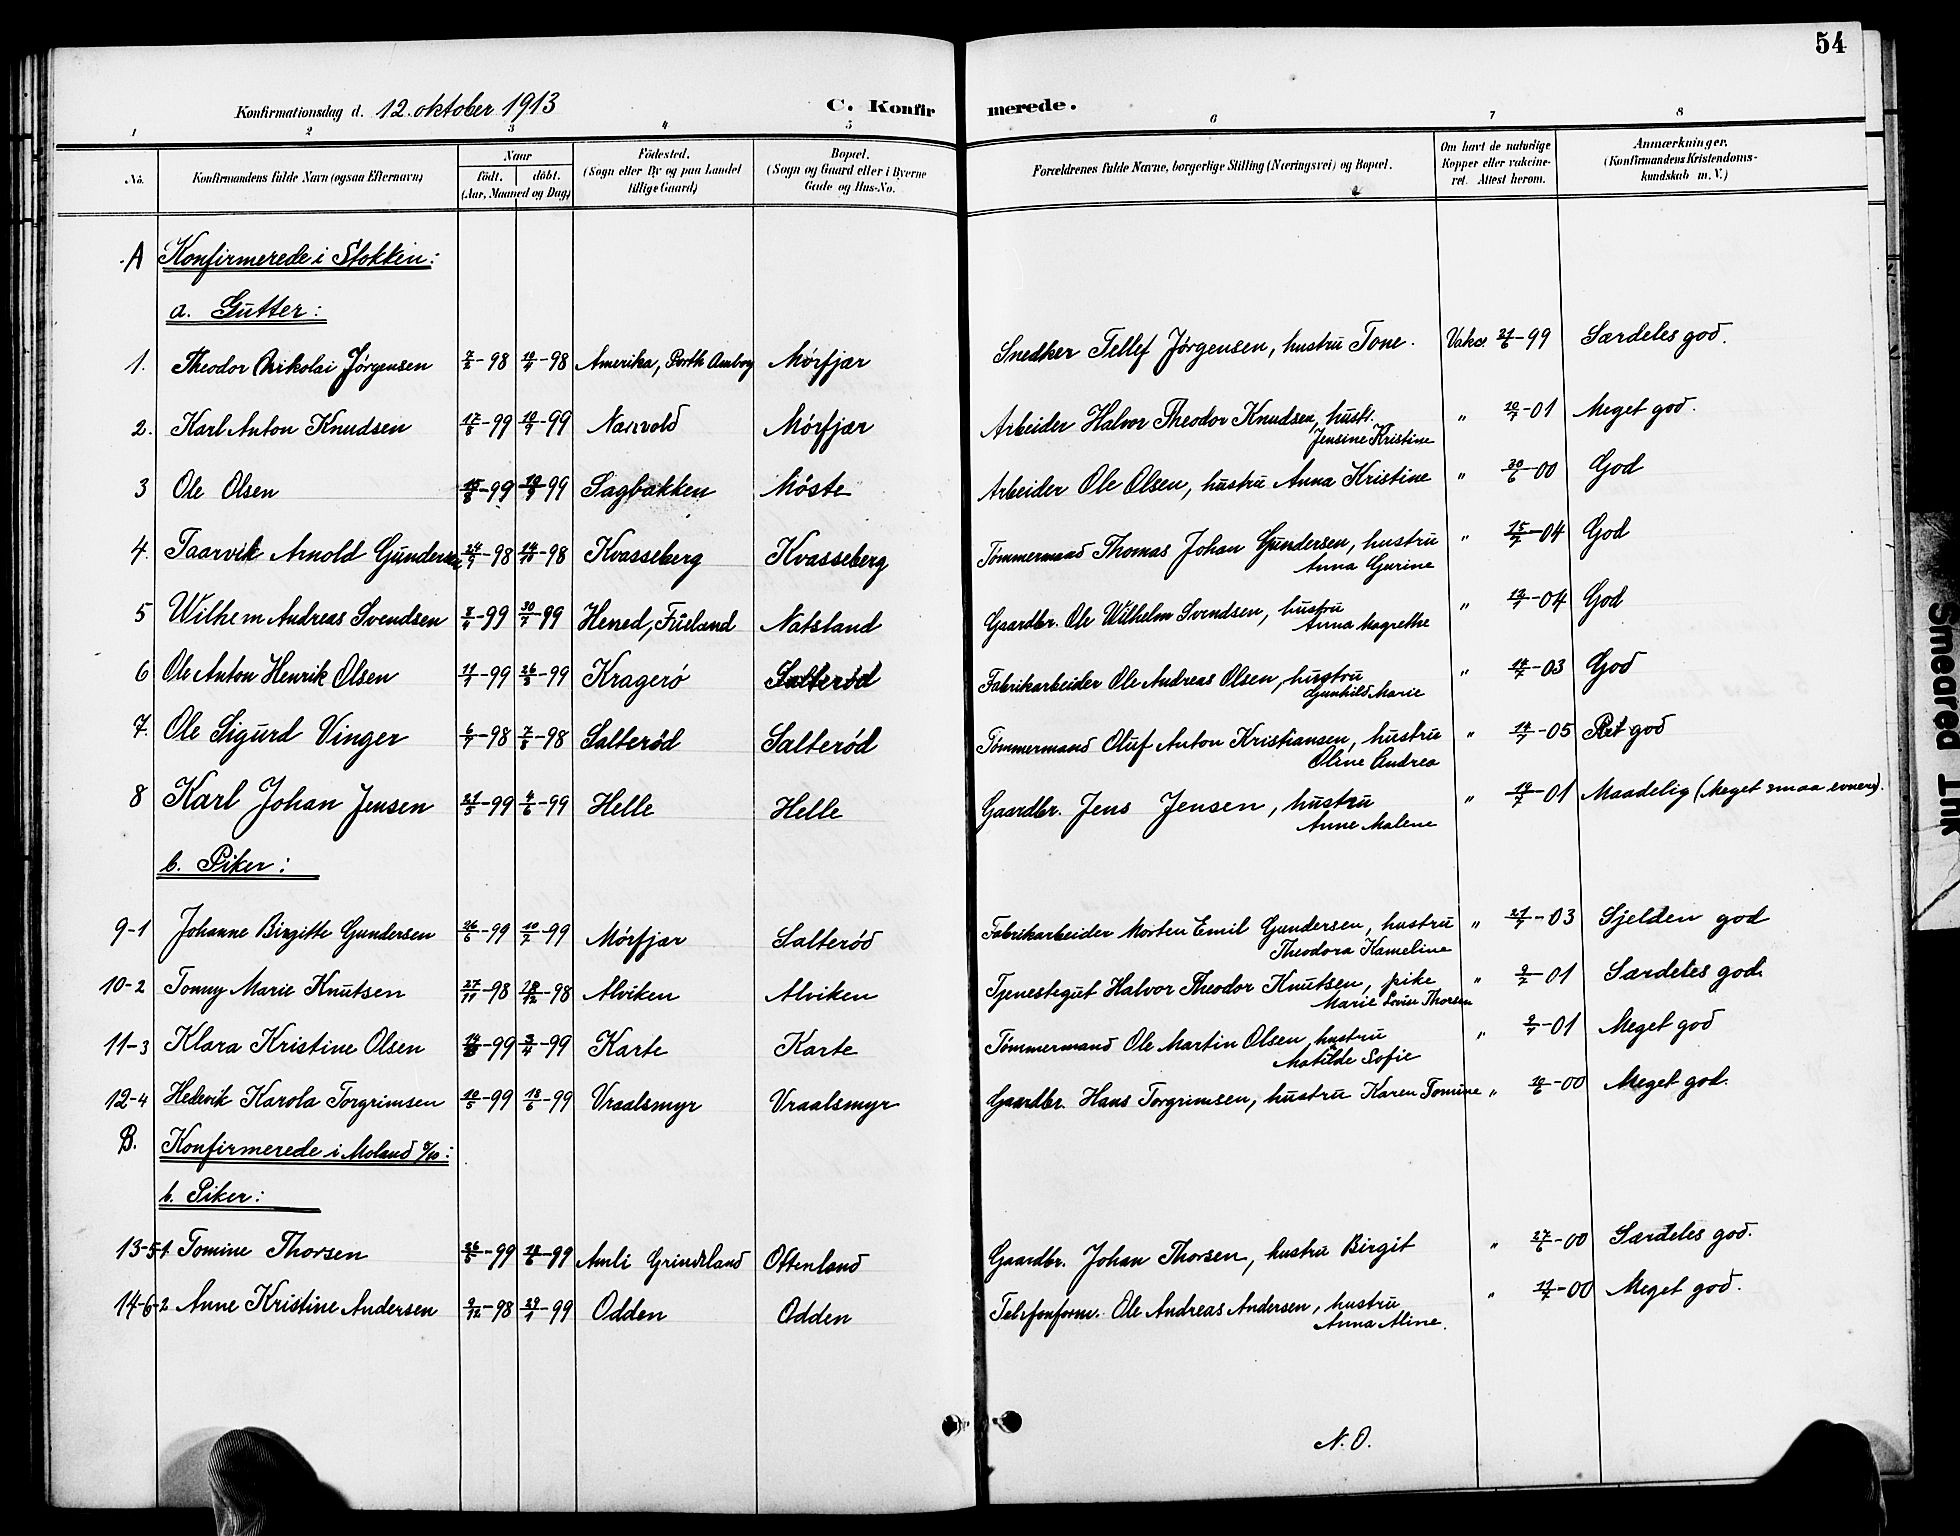 54
Konfirmationsdag d. 12. oktober 1913
C. Konfirmerede.
1 2 3 4 5 6 7 8
No. Konfirmandens fulde Navn (ogsaa Efternavn) Naar Född. döbt. (Aar, Maaned og Dag) Födested. (Sogn eller By og paa Landet tillige Gaard) Bopæl. (Sogn og Gaard eller i Byerne Gade og Hus-No. Forældrenes fulde Navne, borgerlige Stilling (Næringsvei) og Bopæl. Om havt de naturlige Kopper eller vakcineret. Attest herom. Anmærkninger. (Konfirmandens Kristendomskundskab m. V.)
A Konfirmerede i Stokken:
a. Gutter:
1. Theodor Nikolai Jørgensen 7/2-98 10/4-98 Amerika, Perth Amboy Mórfjær Snedker Tellef Jørgensen, hustru Tone. Vakc. 21/6-99 Særdeles god.
2. Karl Anton Knudsen 17/8-99 10/9-99 Narvold Mórfjær Arbeider Halvor Theodor Knudsen, hustr. Jensine Kristine " 10/7-01 Meget god.
3 Ole Olsen 99 99 Sagbakken Móste Arbeider Ole Olsen, hustru Anna Kristine " 20/6-00 God
4. Taarvik Arnold Gundersen 24/9-98 14/10-98 Kvasseberg Kvasseberg Tømmermand Thomas Johan Gundersen, hustru Anna Gurine " 15/7-04 God
5 Wilhelm Andreas Svendsen 99 30/7-99 Hened, Froland Natsland Gaardbr. Ole Wilhelm Svendsen, hustru Anna Magrethe " 04 God
6 Ole Anton Henrik Olsen 11/1-99 26/3-99 Krageró Salteród Fabrikarbeider Ole Andreas Olsen, hustru Gunhild Marie " 14/7-03 God
7. Ole Sigurd Vinger 6/7-98 7/8-98 Salteród Salteród Tómmermand Oluf Anton Kristiansen, hustru Oline Andrea " 14/7-05 Ret god
8 Karl Johan Jensen 21/5-99 4/6-99 Helle Helle Gaardbr. Jens Jensen, hustru Anne Malene " 10/7-01 Maadelig (Meget smaa evner).
b. Piker:
9-1 Johanne Birgitte Gundersen 26/6-99 10/7-99 Mórfjær Salteród Fabrikarbeider Morten Emil Gundersen, hustru Theodora Kameline " 21/7-03 Sjelden god
10-2 Tonny Marie Knutsen 27/11-98 28/12-98 Alviken Alviken Tjenestegut Halvor Theodor Knutsen, pike Marie Lovise Thorsen " 9/7-01 Særdeles god.
11-3 Klara Kristine Olsen 99 3/4-99 Karte Karte Tómmermand Ole Martin Olsen, hustru Matilde Sofie " 9/7-01 Meget god
12-4 Hedevik Karola Torgrimsen 10/5-99 18/6-99 Vraalsmyr Vraalsmyr Gaardbr. Hans Torgrimsen, hustru Karen Tomine " 19/6-00 Meget god.
B. Konfirmerede i Moland 5/10:
b. Piker:
13-5-1. Tomine Thorsen 26/5-99 18/6-99 Amli Grindland Ottenland Gaardbr. Johan Thorsen, hustru Birgit " 27/6-00 Særdeles god.
14-6-2 Anne Kristine Andersen 9/12-98 29/1-99 Odden Odden Telefonform. Ole Andreas Andersen, hustru Anna Aline. " 00 Meget god.
N. O.
Smeared Ink